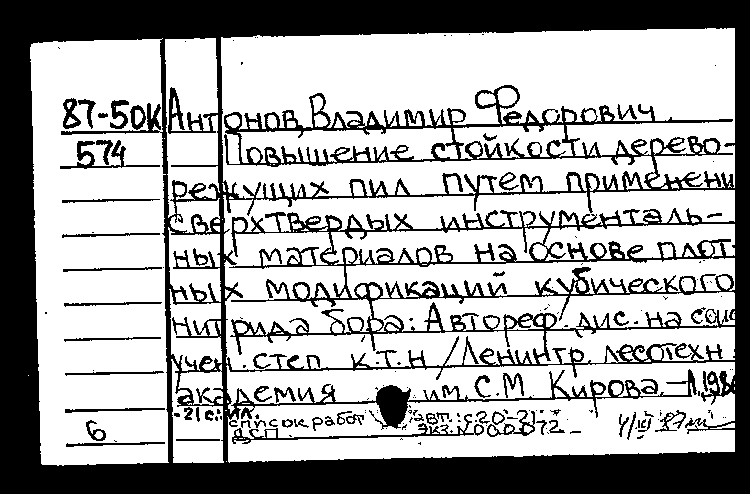 87-50К Антонов, Владимир Федорович.
574 Повышение стойкости дерево-
режущих пил путем применени
сверхтвердых инструменталь-
ных материалов на основе плот-
ных модификаций кубического
нитрида бора: Автореф. дис. на соис
учен. степ. к.т.н / Ленингр. лесотехн.
академия им. С.М. Кирова. – Л., 198
-21 с.: ил.
список работ авт.: с 20-21.
6 ДСП Экз. N 000072 –